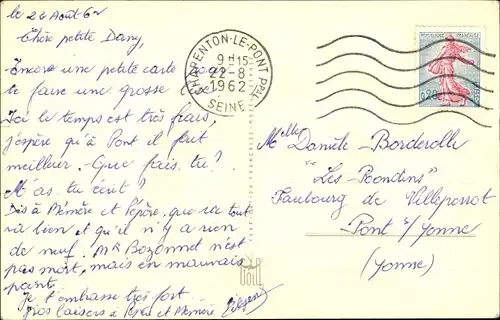 le 22 Août 62
Chère petite Dany,
Encore une petite carte pour
te faire une grosse bise!
Ici le temps est très frais,
j'espère qu'à Pont il fait
meilleur. Que fais-tu?
M'as-tu écrit?
Dis à Mémère et Pépère que va tout
va bien et qu'il n'y a rien
de neuf. Mr Bozonnet n'est
pas mort, mais en mauvais
point.
Je t'embrasse très fort.
Gros baisers à Pépère et Mémère
CHARENTON-LE-PONT PPAL
9H15
22-8
1962
SEINE
REPUBLIQUE FRANÇAISE
0,20
Melle Danièle Borderolle
"Les Rondins"
Faubourg de Villeperrot
Pont s/Yonne
(Yonne)